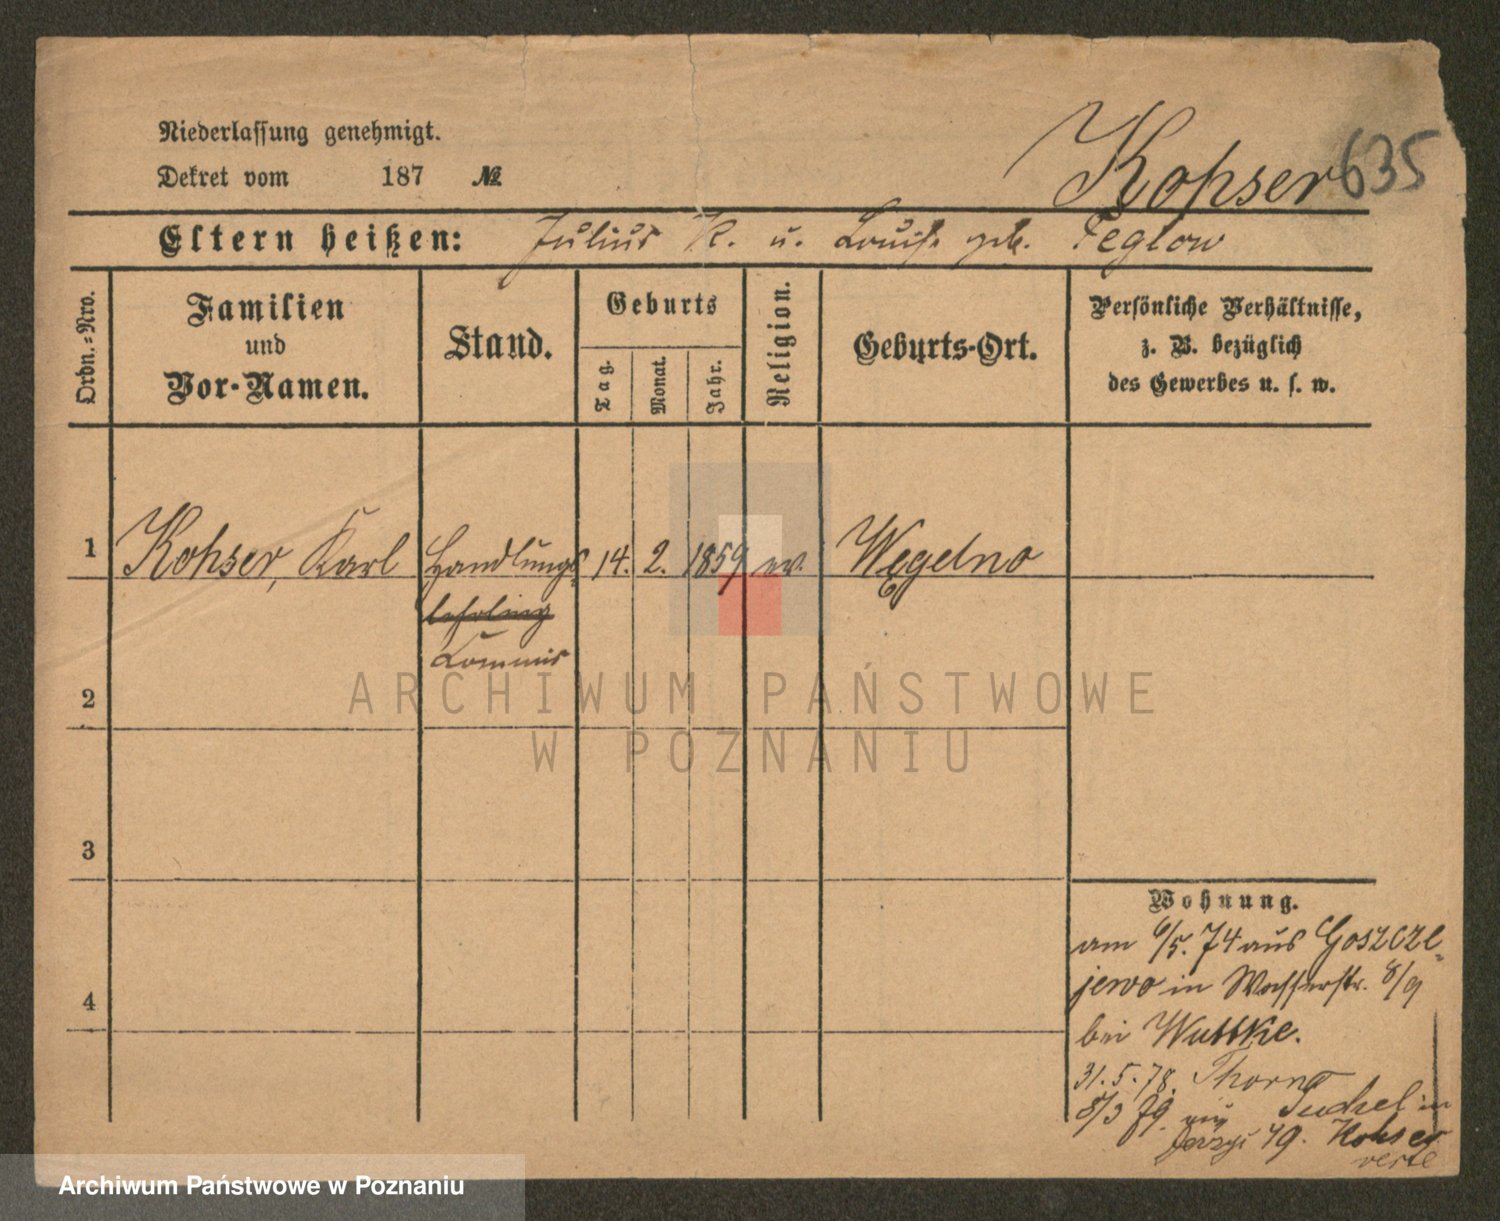 Niederlassung genehmigt.
Dekret vom 187 №
Kohser 635
Eltern heißen: Julius K. u. Louise geb. Teglow
Ordn.-Nro.
Familien
und
Vor-Namen.
Stand.
Geburts
Tag.
Monat.
Jahr.
Religion.
Geburts-Ort.
Persönliche Verhältnisse,
z. B. bezüglich
des Gewerbes u. s. w.
1 Kohser, Karl Handlungs- 14. 2. 1859 ev. Węgelno
lehrling
Kommis
2
3
4
Wohnung.
am 6/5. 74 aus Goszcze-
jewo in Wasserstr. 8/9
bei Wuttke.
31.5.78. Thorn
8/3 79. aus Tuchel in
49. Kohser
verte
ARCHIWUM PAŃSTWOWE
W POZNANIU
Archiwum Państwowe w Poznaniu